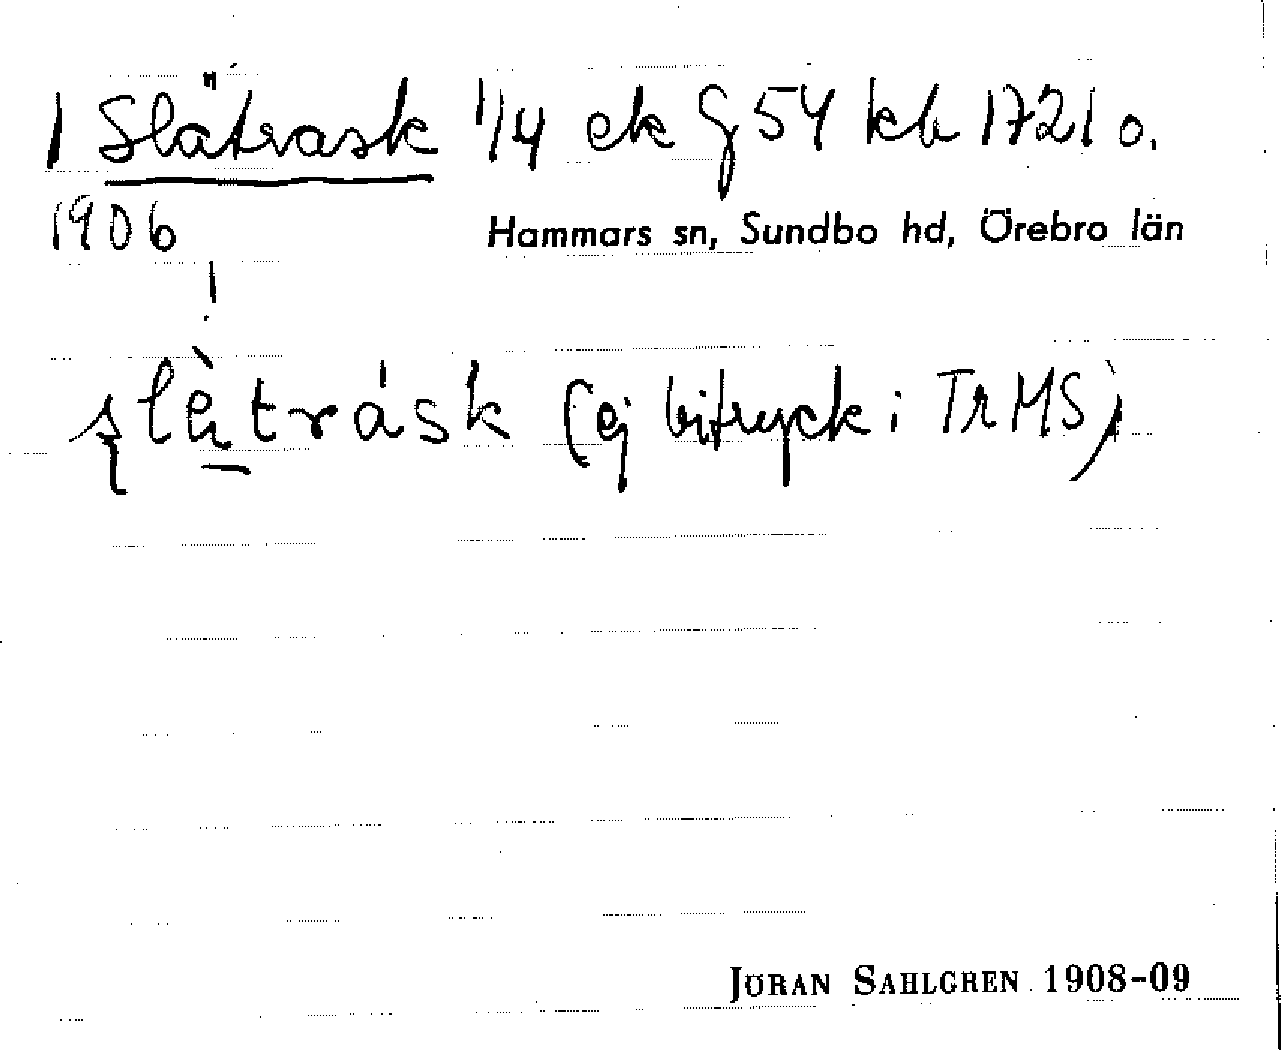 1 Slätrask 1/4 ek G 54 kb 1721 o.
1906
Hammars sn, Sundbo hd, Örebro län
!
slètrásk (ej bitryck i TrMS)
JÖRAN SAHLGREN 1908-09